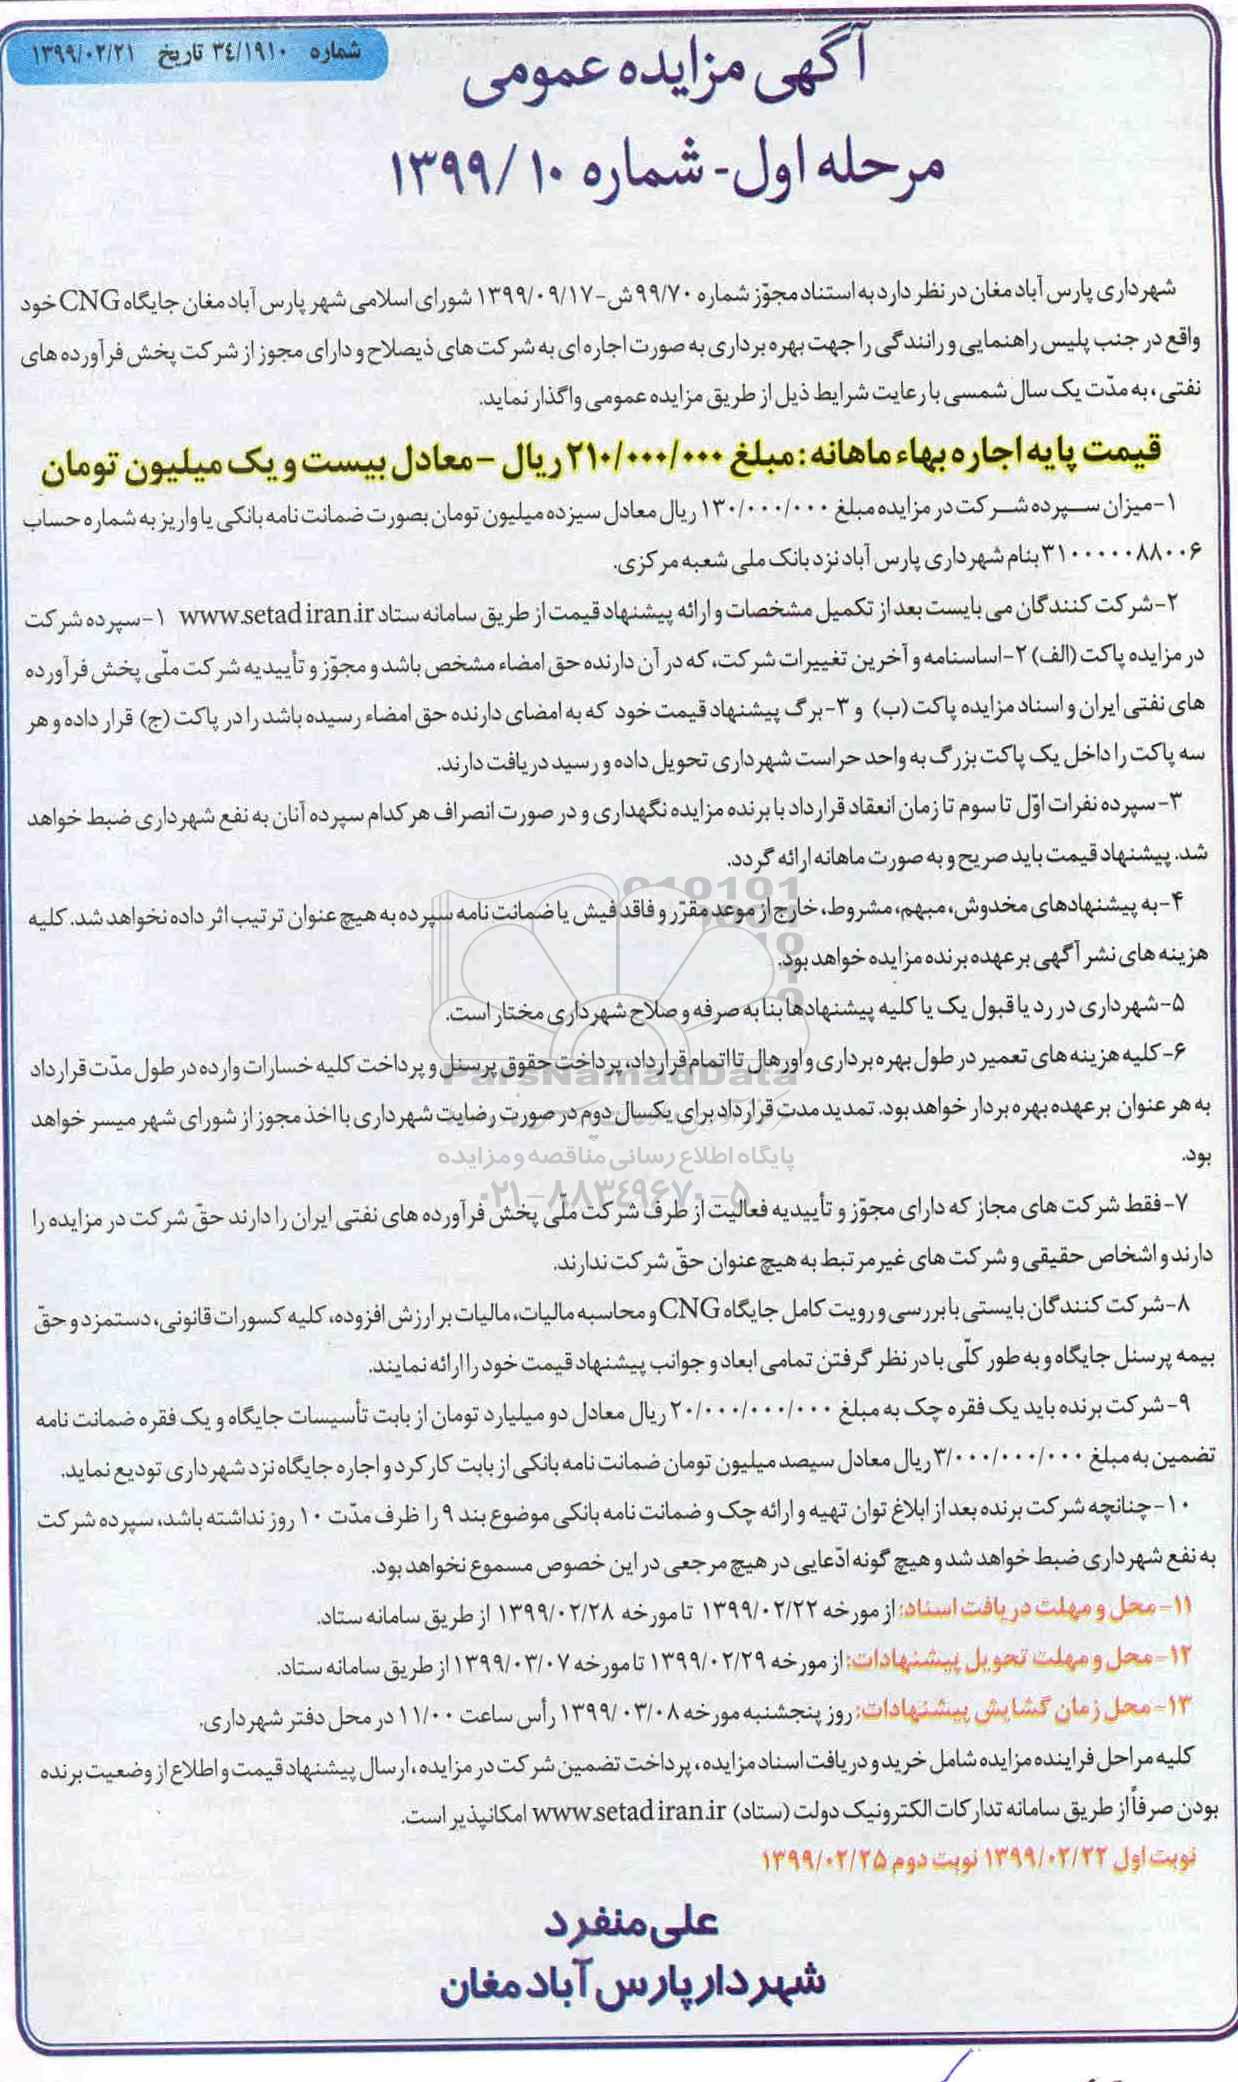 شماره ۳۴/۱۹۱۰ تاریخ ۱۳۹۹/۰۲/۲۱
آگهی مزایده عمومی
مرحله اول- شماره ۱۰ /۱۳۹۹
شهرداری پارس آباد مغان در نظر دارد به استناد مجوّز شماره ۹۹/۷۰ش-۱۳۹۹/۰۹/۱۷ شورای اسلامی شهر پارس آباد مغان جایگاه CNG خود
واقع در جنب پلیس راهنمایی و رانندگی را جهت بهره برداری به صورت اجاره ای به شرکت های ذیصلاح و دارای مجوز از شرکت پخش فرآورده های
نفتی ، به مدّت یک سال شمسی با رعایت شرایط ذیل از طریق مزایده عمومی واگذار نماید.
قیمت پایه اجاره بهاء ماهانه : مبلغ ۲۱۰/۰۰۰/۰۰۰ ریال - معادل بیست و یک میلیون تومان
۱-میزان سـپرده شـرکت در مزایده مبلغ ۱۳۰/۰۰۰/۰۰۰ ریال معادل سیزده میلیون تومان بصورت ضمانت نامه بانکی یا واریز به شماره حساب
۳۱۰۰۰۰۰۸۸۰۰۶ بنام شهرداری پارس آباد نزد بانک ملی شعبه مرکزی.
۲-شرکت کنندگان می بایست بعد از تکمیل مشخصات و ارائه پیشنهاد قیمت از طریق سامانه ستاد www.setadiran.ir ۱-سپرده شرکت
در مزایده پاکت (الف) ۲-اساسنامه و آخرین تغییرات شرکت، که در آن دارنده حق امضاء مشخص باشد و مجوّز و تأییدیه شرکت ملّی پخش فرآورده
های نفتی ایران و اسناد مزایده پاکت (ب) و ۳-برگ پیشنهاد قیمت خود که به امضای دارنده حق امضاء رسیده باشد را در پاکت (ج) قرار داده و هر
سه پاکت را داخل یک پاکت بزرگ به واحد حراست شهرداری تحویل داده و رسید دریافت دارند.
۳-سپرده نفرات اوّل تا سوم تا زمان انعقاد قرارداد با برنده مزایده نگهداری و در صورت انصراف هر کدام سپرده آنان به نفع شهرداری ضبط خواهد
شد. پیشنهاد قیمت باید صریح و به صورت ماهانه ارائه گردد.
۴-به پیشنهادهای مخدوش، مبهم، مشروط، خارج از موعد مقرّر و فاقد فیش یا ضمانت نامه سپرده به هیچ عنوان ترتیب اثر داده نخواهد شد. کلیه
هزینه های نشر آگهی برعهده برنده مزایده خواهد بود.
۵-شهرداری در رد یا قبول یک یا کلیه پیشنهادها بنا به صرفه و صلاح شهرداری مختار است.
۶-کلیه هزینه های تعمیر در طول بهره برداری و اورهال تا اتمام قرارداد، پرداخت حقوق پرسنل و پرداخت کلیه خسارات وارده در طول مدّت قرارداد
ParsNamadData
به هر عنوان برعهده بهره بردار خواهد بود. تمدید مدت قرارداد برای یکسال دوم در صورت رضایت شهرداری با اخذ مجوز از شورای شهر میسر خواهد
بود.
پایگاه اطلاع رسانی مناقصه و مزایده
۰۲۱-۸۸۳۴۹۶۷۰-۵
۷-فقط شرکت های مجاز که دارای مجوّز و تأییدیه فعالیت از طرف شرکت ملّی پخش فرآورده های نفتی ایران را دارند حقّ شرکت در مزایده را
دارند و اشخاص حقیقی و شرکت های غیرمرتبط به هیچ عنوان حقّ شرکت ندارند.
۸-شرکت کنندگان بایستی با بررسی و رویت کامل جایگاه CNG و محاسبه مالیات، مالیات بر ارزش افزوده، کلیه کسورات قانونی، دستمزد و حقّ
بیمه پرسنل جایگاه و به طور کلّی با در نظر گرفتن تمامی ابعاد و جوانب پیشنهاد قیمت خود را ارائه نمایند.
۹-شرکت برنده باید یک فقره چک به مبلغ ۲۰/۰۰۰/۰۰۰/۰۰۰ ریال معادل دو میلیارد تومان از بابت تأسیسات جایگاه و یک فقره ضمانت نامه
تضمین به مبلغ ۳/۰۰۰/۰۰۰/۰۰۰ ریال معادل سیصد میلیون تومان ضمانت نامه بانکی از بابت کارکرد و اجاره جایگاه نزد شهرداری تودیع نماید.
۱۰-چنانچه شرکت برنده بعد از ابلاغ توان تهیه و ارائه چک و ضمانت نامه بانکی موضوع بند ۹ را ظرف مدّت ۱۰ روز نداشته باشد، سپرده شرکت
به نفع شهرداری ضبط خواهد شد و هیچ گونه ادّعایی در هیچ مرجعی در این خصوص مسموع نخواهد بود.
۱۱-محل و مهلت دریافت اسناد: از مورخه ۱۳۹۹/۰۲/۲۲ تا مورخه ۱۳۹۹/۰۲/۲۸ از طریق سامانه ستاد.
۱۲-محل و مهلت تحویل پیشنهادات: از مورخه ۱۳۹۹/۰۲/۲۹ تا مورخه ۱۳۹۹/۰۳/۰۷ از طریق سامانه ستاد.
۱۳-محل زمان گشایش پیشنهادات: روز پنجشنبه مورخه ۱۳۹۹/۰۳/۰۸ رأس ساعت ۱۱/۰۰ در محل دفتر شهرداری.
کلیه مراحل فرایند مزایده شامل خرید و دریافت اسناد مزایده ، پرداخت تضمین شرکت در مزایده ، ارسال پیشنهاد قیمت و اطلاع از وضعیت برنده
بودن صرفاً از طریق سامانه تدارکات الکترونیک دولت (ستاد) www.setadiran.ir امکانپذیر است.
نوبت اول ۱۳۹۹/۰۲/۲۲ نوبت دوم ۱۳۹۹/۰۲/۲۵
علی منفرد
شهردار پارس آباد مغان